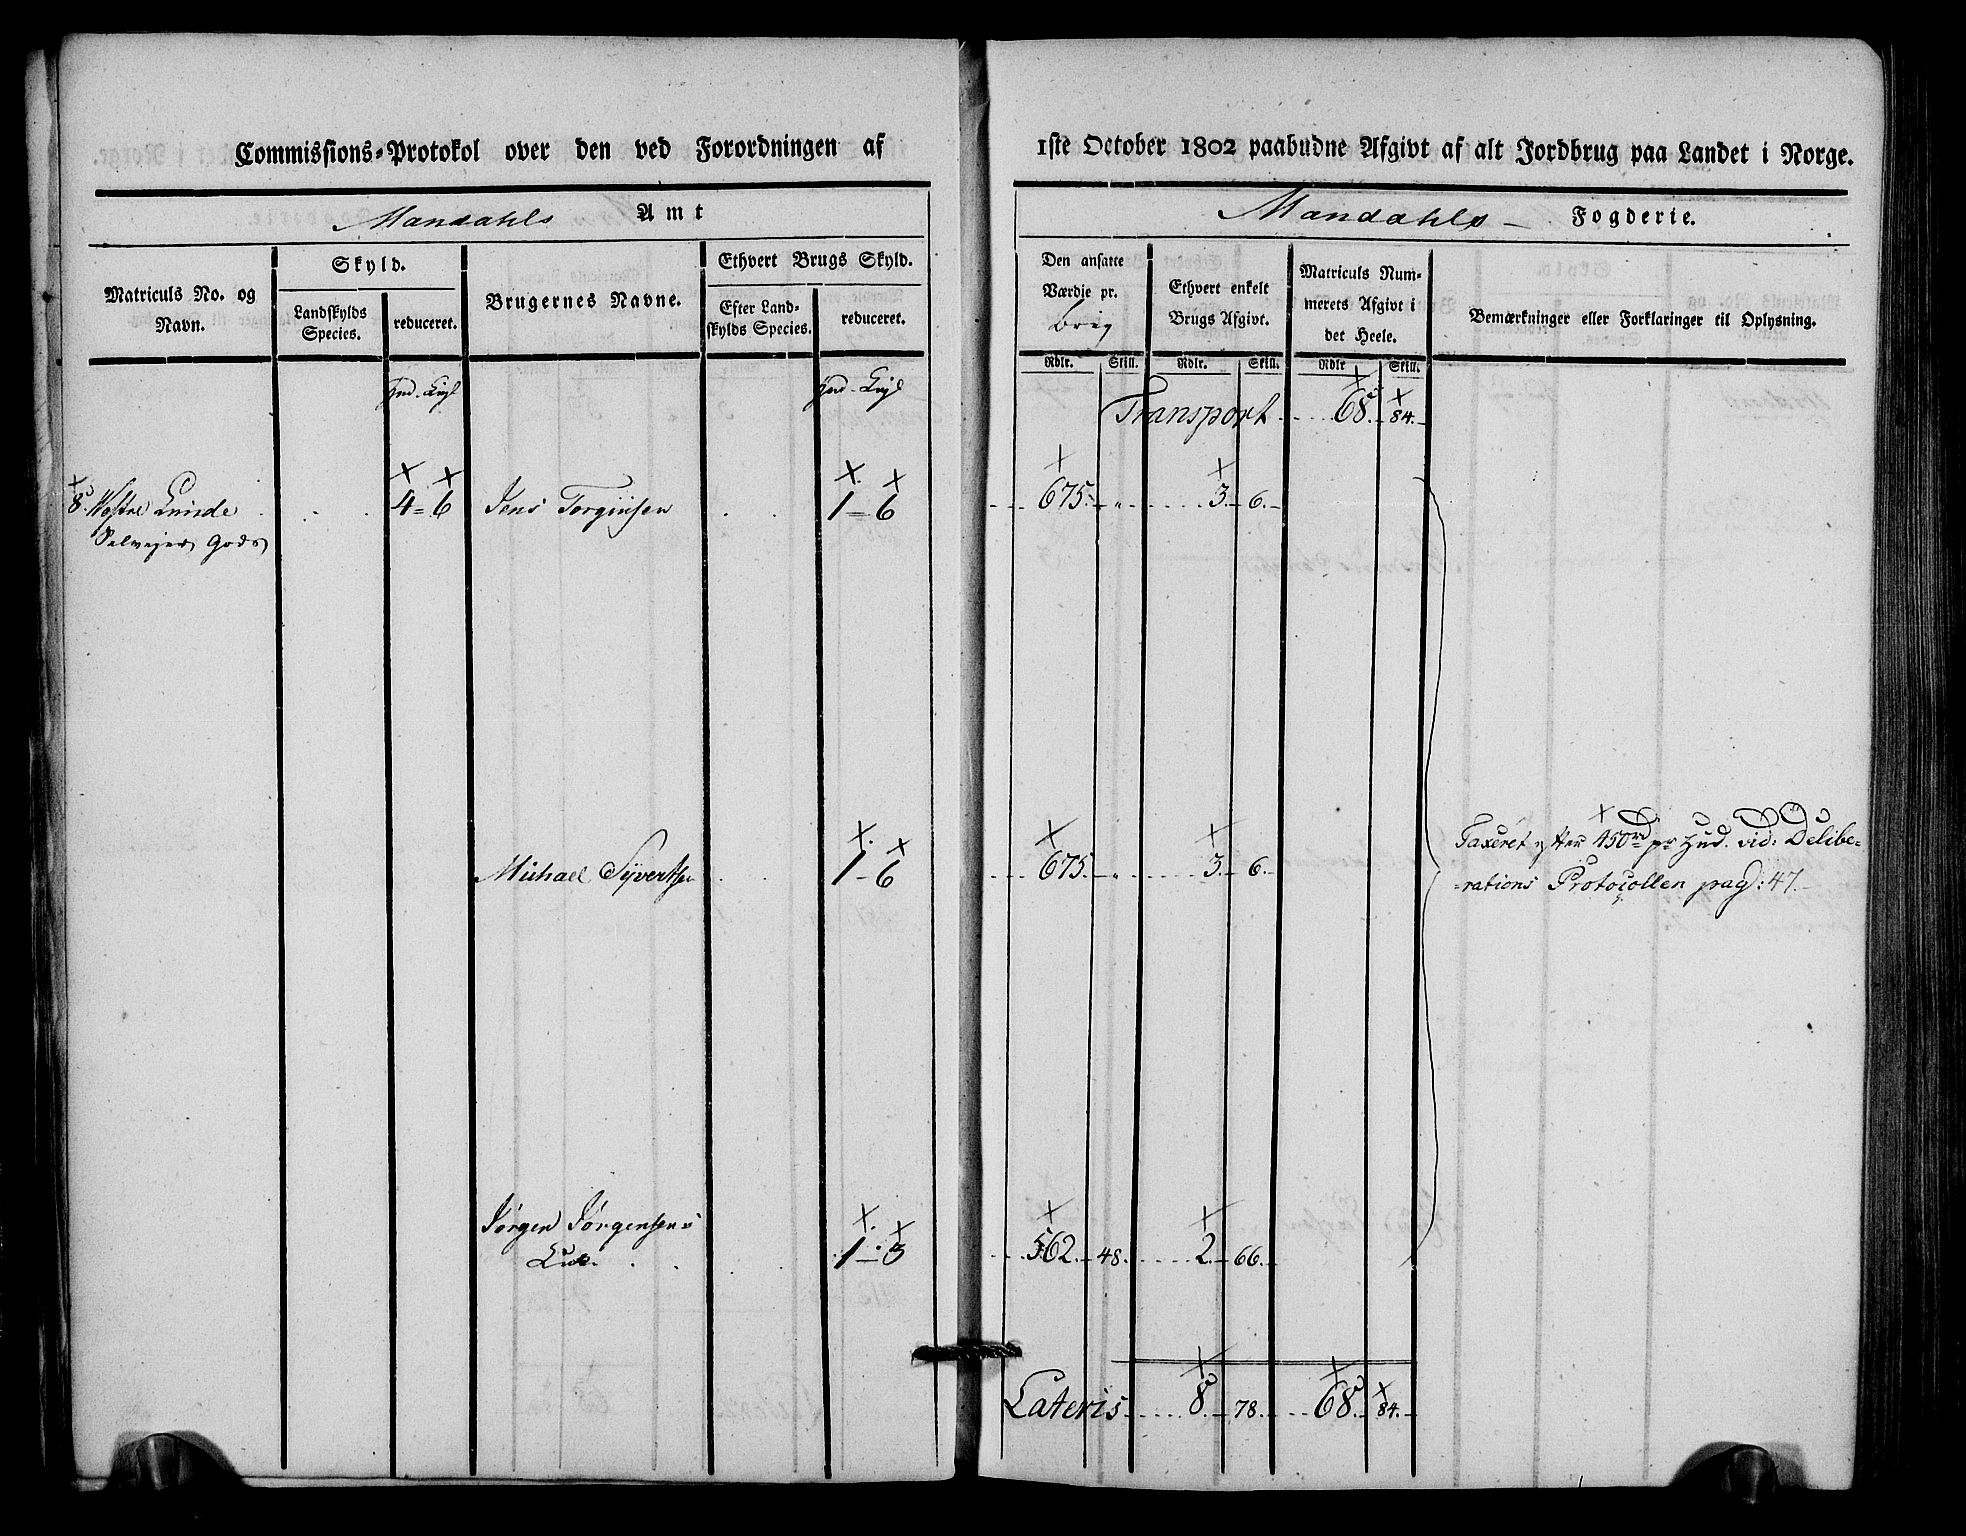 Commissions-Protokol over den ved Forordningen af 1ste October 1802 paabudne Afgivt af alt Jordbrug paa Landet i Norge.
Mandahls Amt
Mandahls Fogderie.
Matriculs No. og Navn.
Skyld.
Landskylds Species.
reduceret.
Brugernes Navne.
Ethvert Brugs Skyld.
Efter Landskylds Species.
reduceret.
Den ansatte Værdie pr. Brug
Ethvert enkelt Brugs Afgivt.
Matriculs Nummerets Afgivt i det Heele.
Bemærkninger eller Forklaringer til Oplysning.
Rdlr. Skill. Rdlr. Skill. Rdlr Skill.
Transport 68. 84.
8. Westre Lunde 4 - 6 Jens 1 - 6 675. " 3. 6.
Selveier Gods
Michael Syvertsen 1 - 6 675. " 3. 6.
Taxeret efter 450rd pr Hud. vid: Delibe=
=rations Protocollen pag: 47.
Jørgen Jørgensens 1 - 3 562. 48. 2. 66.
Lateris 8. 78. 68. 84.